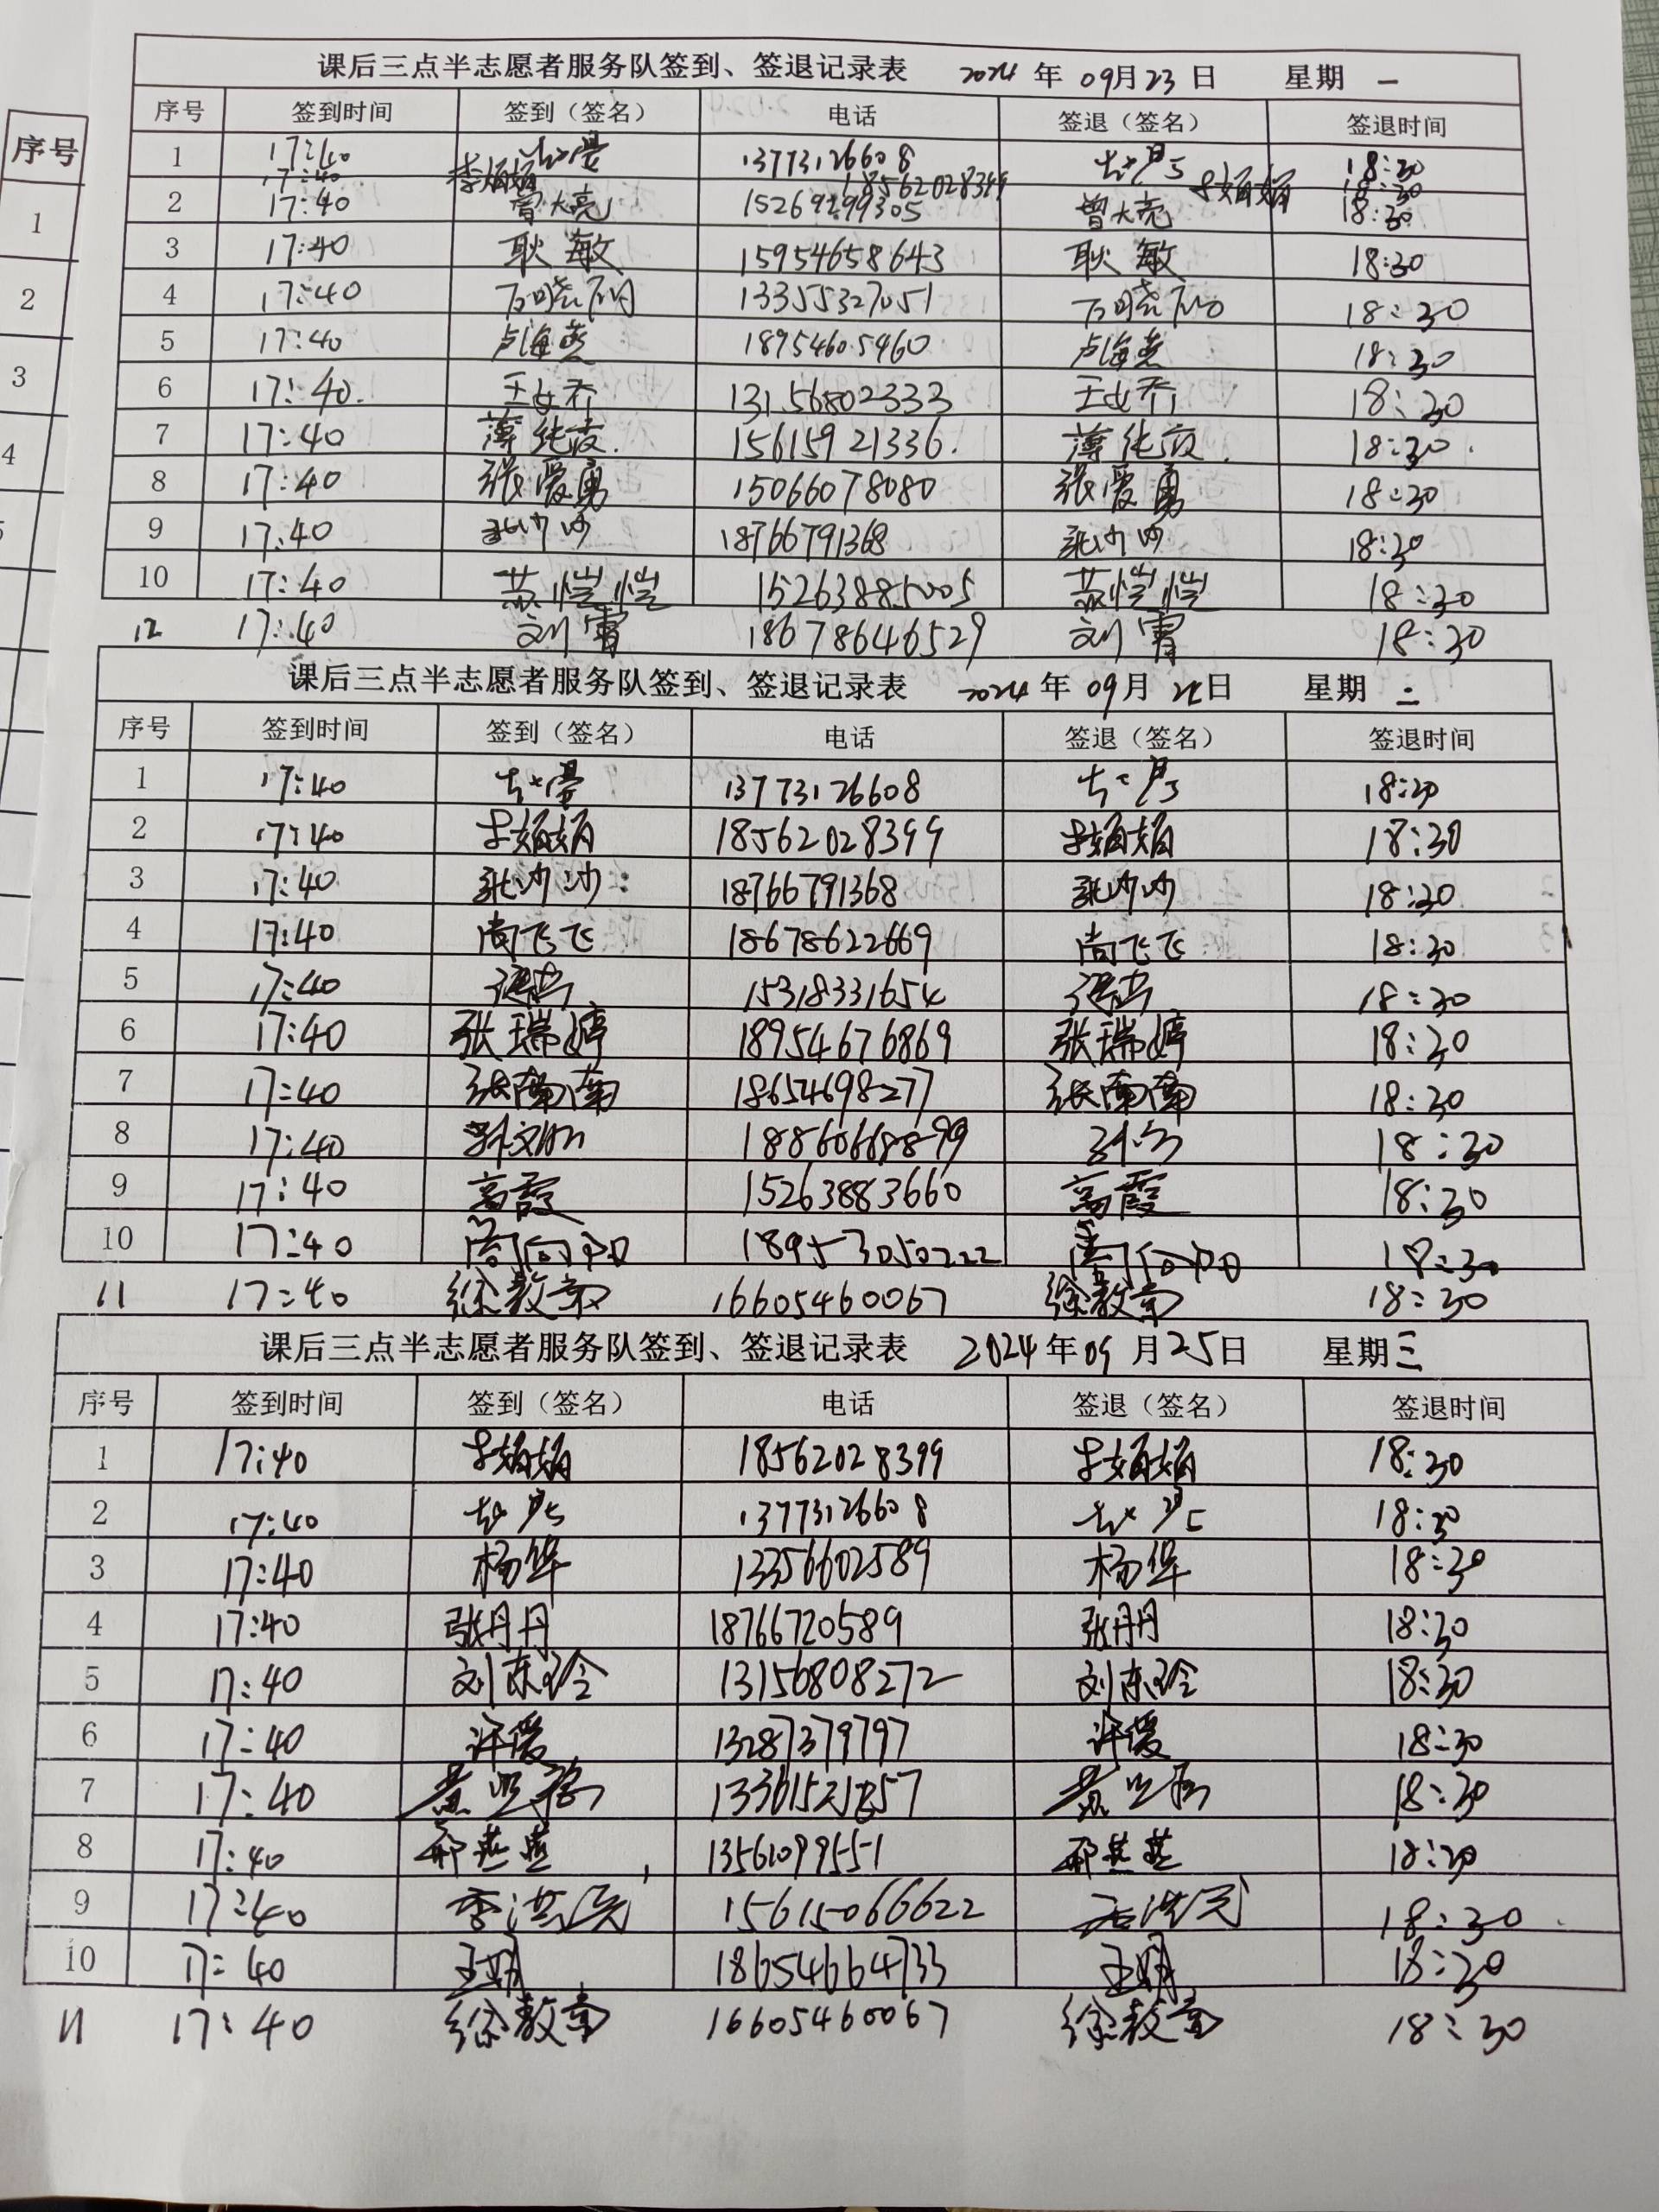 序号
1
2
3
4
课后三点半志愿者服务队签到、签退记录表 2024年09月23日 星期一
序号 签到时间 签到（签名） 电话 签退（签名） 签退时间
1 17:40 13773126608 18:30
17:40 李娟娟 18562028399 李娟娟 18:30
2 17:40 曾大亮 15269299305 曾大亮 18:30
3 17:40 耿敏 15954658643 耿敏 18:30
4 17:40 13355327051 18:30
5 17:40 卢海燕 18954605460 卢海燕 18:30
6 17:40. 王女乔 13156802333 王女乔 18:30
7 17:40 薄纯霞. 15615921336. 薄纯霞. 18:30.
8 17:40 张爱勇 15066078080 张爱勇 18:30
9 17:40 张沙沙 18766791368 张沙沙 18:30
10 17:40 苏恺恺 15263885005 苏恺恺 18:30
12 17:40 刘霄 18678646529 刘霄 18:30
课后三点半志愿者服务队签到、签退记录表 2024年09月24日 星期二
序号 签到时间 签到（签名） 电话 签退（签名） 签退时间
1 17:40 13773126608 18:30
2 17:40 李娟娟 18562028399 李娟娟 18:30
3 17:40 张沙沙 18766791368 张沙沙 18:30
4 17:40 尚飞飞 18678622669 尚飞飞 18:30
5 17:40 15318331654 18:30
6 17:40 张瑞婷 18954676869 张瑞婷 18:30
7 17:40 张南南 18654698277 张南南 18:30
8 17:40 18:30
9 17:40 高霞 15263883660 高霞 18:30
10 17:40 18953050222 18:30
11 17:40 徐教章 16605460067 徐教章 18:30
课后三点半志愿者服务队签到、签退记录表 2024年09月25日 星期三
序号 签到时间 签到（签名） 电话 签退（签名） 签退时间
1 17:40 李娟娟 18562028399 李娟娟 18:30
2 17:40 13773126608 18:30
3 17:40 杨华 13356602589 杨华 18:30
4 17:40 张丹丹 18766720589 张丹丹 18:30
5 17:40 刘东玲 13156808272 刘东玲 18:30
6 17:40 许媛 13287379797 许媛 18:30
7 17:40 18:30
8 17:40 邢燕燕 13561099551 邢燕燕 18:30
9 17:40 李洪民 15615066622 李洪民 18:30
10 17:40 王娟 18654664733 王娟 18:30
11 17:40 徐教章 16605460067 徐教章 18:30